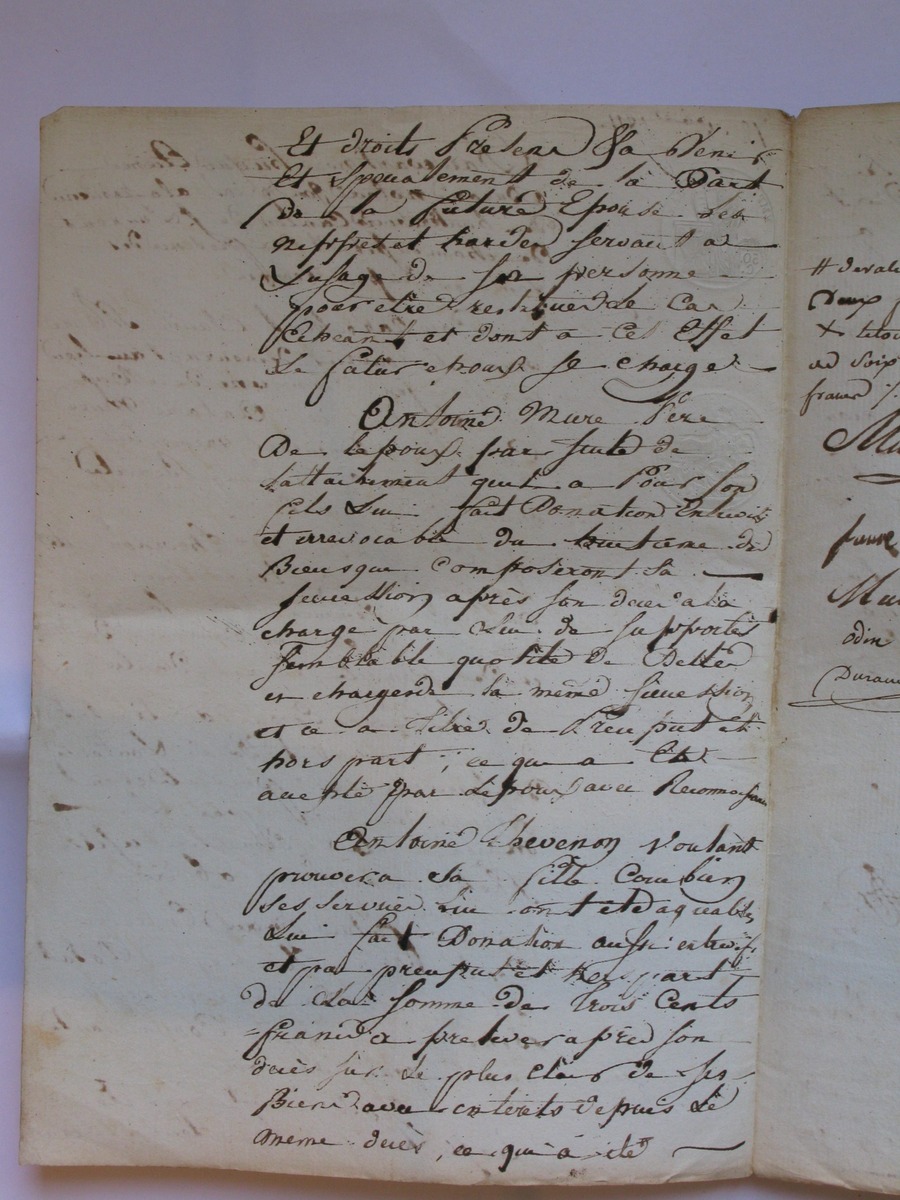 Et droits Present & a Venir
Et specialement de la Part
De la future Epouse des
nippes et hardes servant a
Lusage de sa personne
pour etre restitués le cas
Echeant et dont a cet Effet
Le futur epoux se charge
Antoine Mure Pere
De lepoux par suite de
lattachement quil a Pour Son
fils Lui fait Donation Entrevifs
et irrevocable du huitieme des
Biens qui Composeront sa
succession après son decès a la
charge par Lui de supporter
semblable quotité De Dettes
et charges de la même succession
et ce a titre de Preciput et
hors part ; ce qui a Eté
accepté par Lépoux avec Reconnoissance
Antoine Thevenon Voulant
prouver a sa fille Combien
ses services Lui ont été agreables
Lui fait Donation aussi entrevifs
et par preciput et hors part
de la somme de Trois Cents
francs a prelever après son
decès sur le plus clair de ses
Biens avec interets depuis Le
meme decès, ce qui à été
Deux
francs
Durand
odin